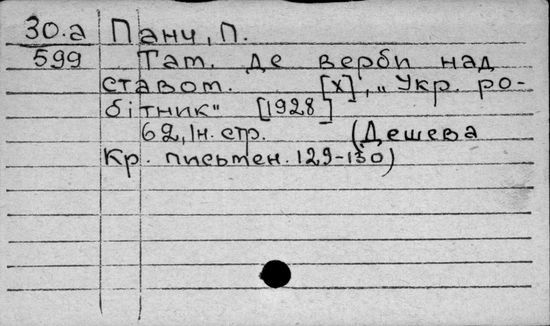 30.а Панч, П.
599 Там, де верби над
ставом. [х], „Укр. ро-
бітник" [1928]
62, Ін. стр. (Дешева
Кр. письмен. 129-130)